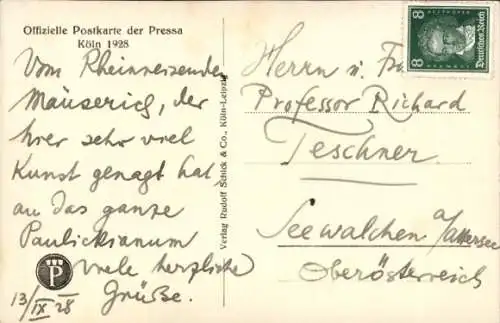 Offizielle Postkarte der Pressa
Köln 1928
Vom Rheinreisenden
Mäuserich, der
hier sehr viel
Kunst genagt hat
an das ganze
Paulickianum
viele herzliche
Grüße.
13/IX 28
P
Verlag Rudolf Schick & Co., Köln-Leipzig
8 8
Deutsches Reich
Herrn u.
Professor Richard
Teschner
Seewalchen a/Attersee
Oberösterreich